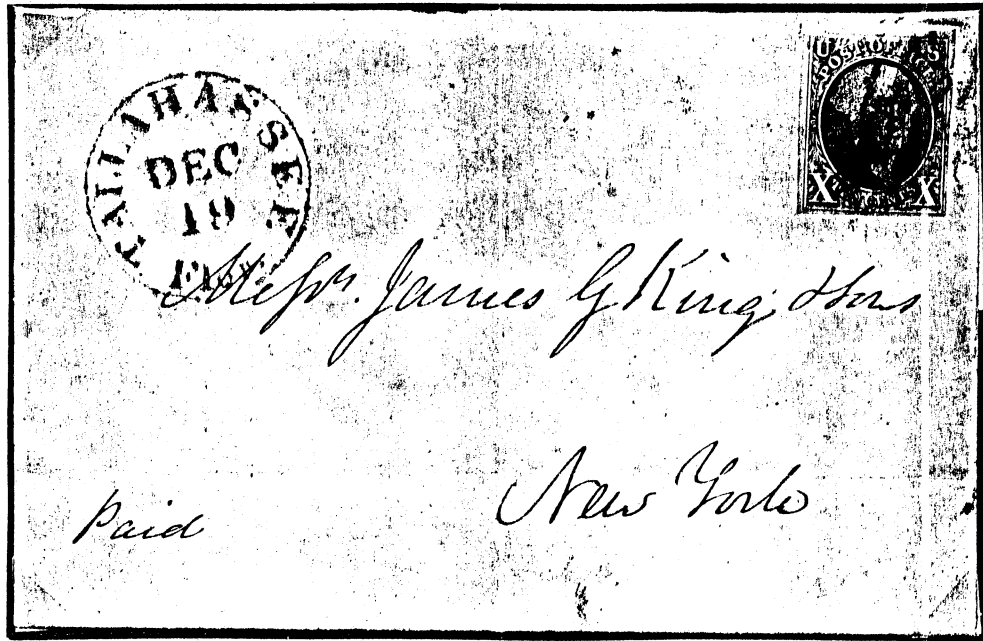 TALLAHASSEE
DEC
19
U S
POST OFFICE
X X
Messrs. James G King & Sons
New York
Paid